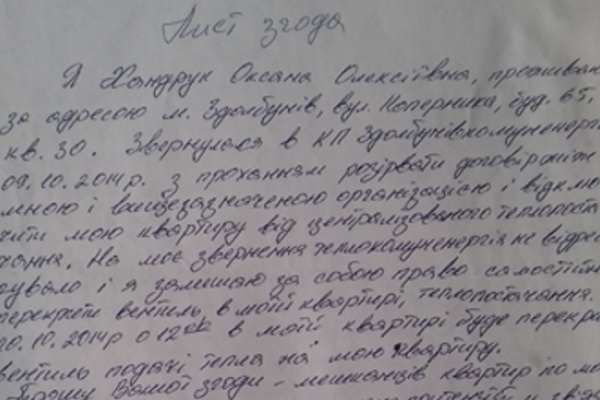 Лист згода
Я Хандрук Оксана Олексіївна, проживаю
за адресою м. Здолбунів, вул. Коперника, буд. 65,
кв. 30. Звернулася в КП Здолбунівкомуненергі
09.10.2014р. з проханням розірвати договір між
мною і вищезазначеною організацією і відклю
чити мою квартиру від централізованого теплопоста
чання. На моє звернення теплокомуненергія не відреа
гувало і я залишаю за собою право самостійн
перекрити вентиль, в моїй квартирі, теплопостачання.
20.10.2014р о 12 в моїй квартирі буде перекри
вентиль подачі тепла на мою квартиру.
Прошу Вашої згоди - мешканців квартир по мо